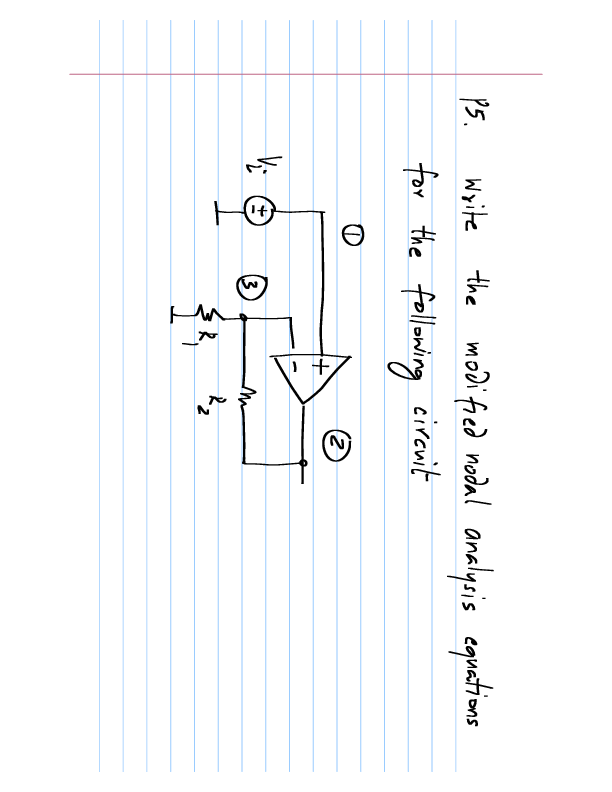 P5. Write the modified nodal analysis equations
for the following circuit
①
Vi
+
-
+
-
②
③
R1
R2